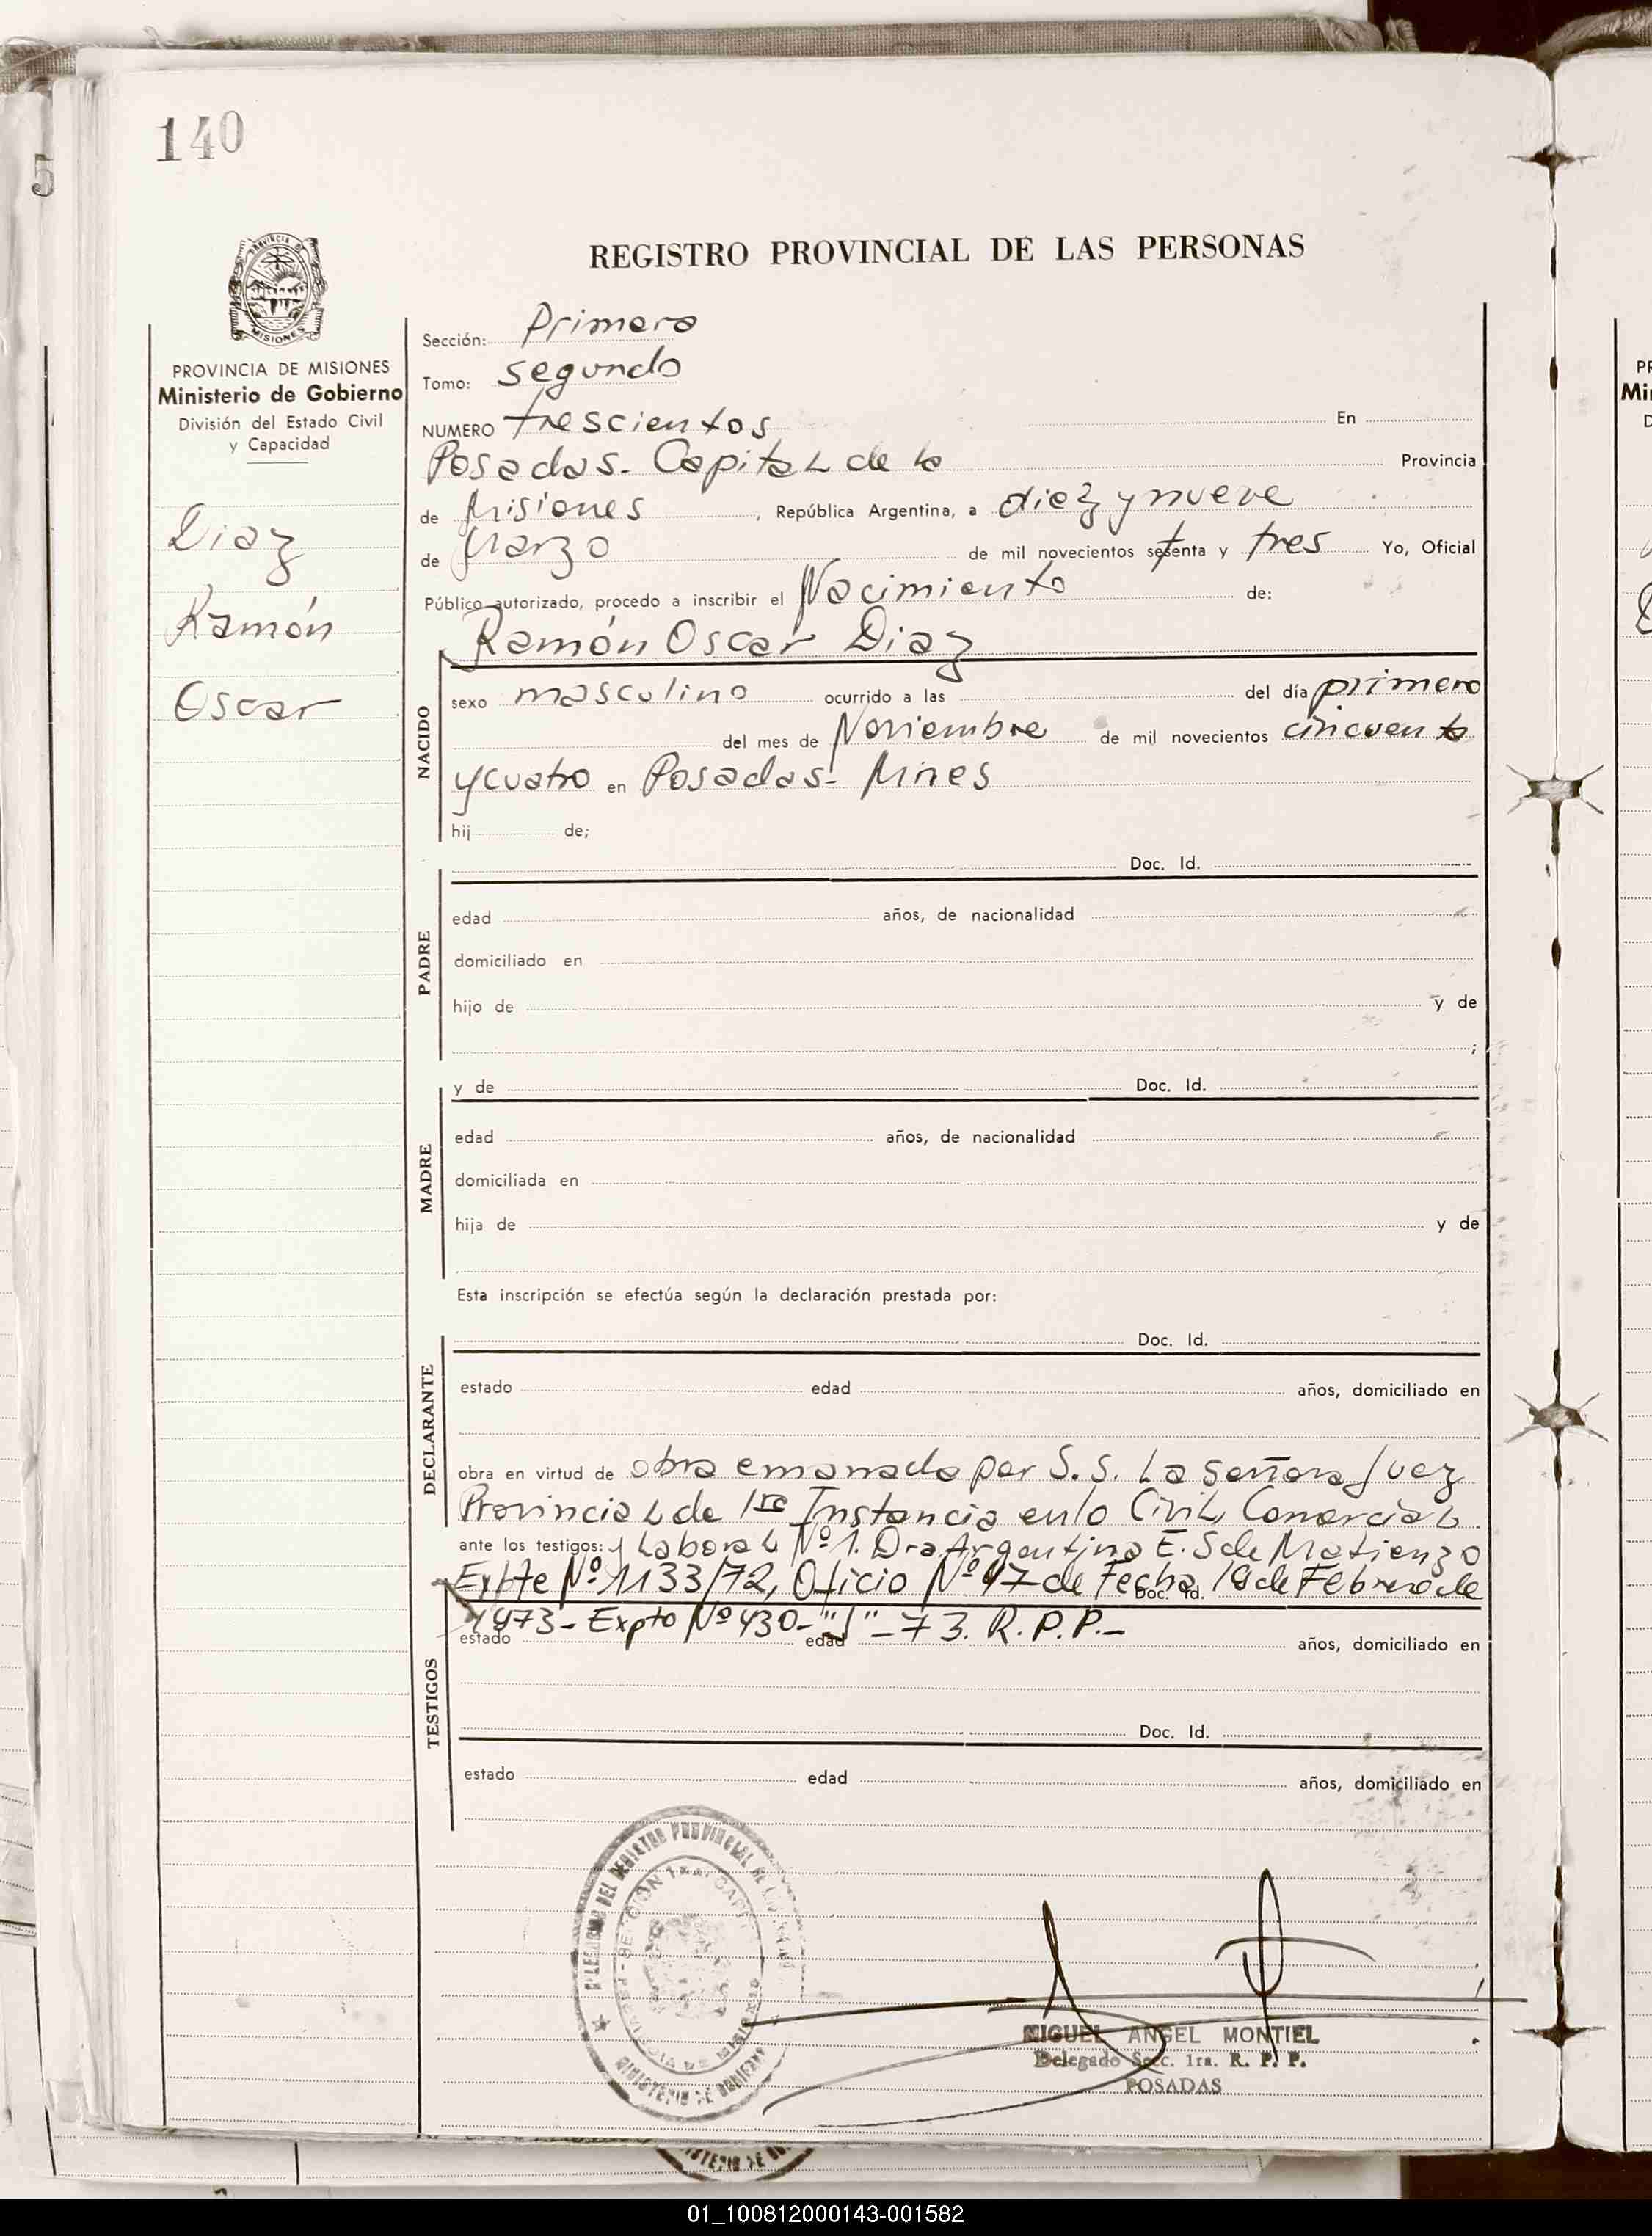 140
5
REGISTRO PROVINCIAL DE LAS PERSONAS
PROVINCIA DE MISIONES
Ministerio de Gobierno
División del Estado Civil
y Capacidad
Diaz
Ramón
Oscar
Sección: Primera
Tomo: segundo
NUMERO trescientos En
Posadas. Capital de la Provincia
de Misiones, República Argentina, a diez y nueve
de Marzo de mil novecientos setenta y tres Yo, Oficial
Público autorizado, procedo a inscribir el Nacimiento de:
Ramón Oscar Diaz
NACIDO
sexo masculino ocurrido a las del día primero
del mes de Noviembre de mil novecientos cincuenta
y cuatro en Posadas- Mnes
hij de;
Doc. Id.
PADRE
edad años, de nacionalidad
domiciliado en
hijo de y de
;
y de Doc. Id.
MADRE
edad años, de nacionalidad
domiciliada en
hija de y de
Esta inscripción se efectúa según la declaración prestada por:
Doc. Id.
DECLARANTE
estado edad años, domiciliado en
obra en virtud de obra emanada por S. S. La señora Juez
Provincial de 1ra Instancia en lo Civil, Comercial
ante los testigos: y Laboral Nº 1. Dra. Argentina E. S de Matienzo
Expte Nº 1133/72, Oficio Nº 97 de Fecha 19 de Febrero de
Doc. Id.
1973- Expto Nº 430- "J" - 73. R. P. P.-
estado edad años, domiciliado en
TESTIGOS
Doc. Id.
estado edad años, domiciliado en
REGISTRO PROVINCIAL DE
MINISTERIO DE GOBIERNO
MIGUEL ANGEL MONTIEL
Delegado Secc. 1ra. R. P. P.
POSADAS
01_100812000143-001582